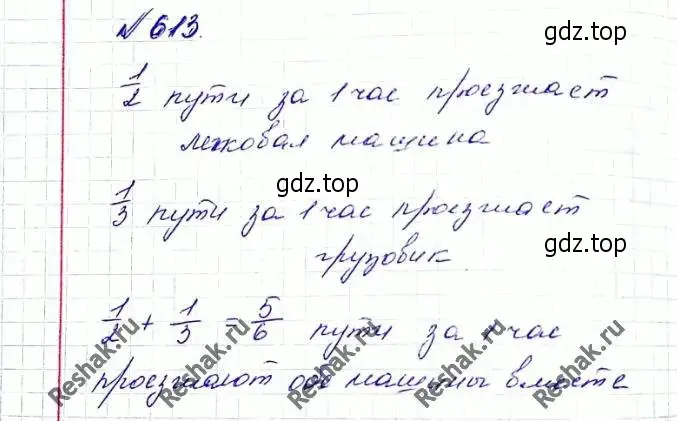 № 613.
gdz.top
1/2 пути за 1 час проезжает
легковая машина
gdz.top
1/3 пути за 1 час проезжает
грузовик
gdz.top
1/2 + 1/3 = 5/6 пути за 1 час
проезжают обе машины вместе
Reshak.ru Reshak.ru Reshak.ru Reshak.ru